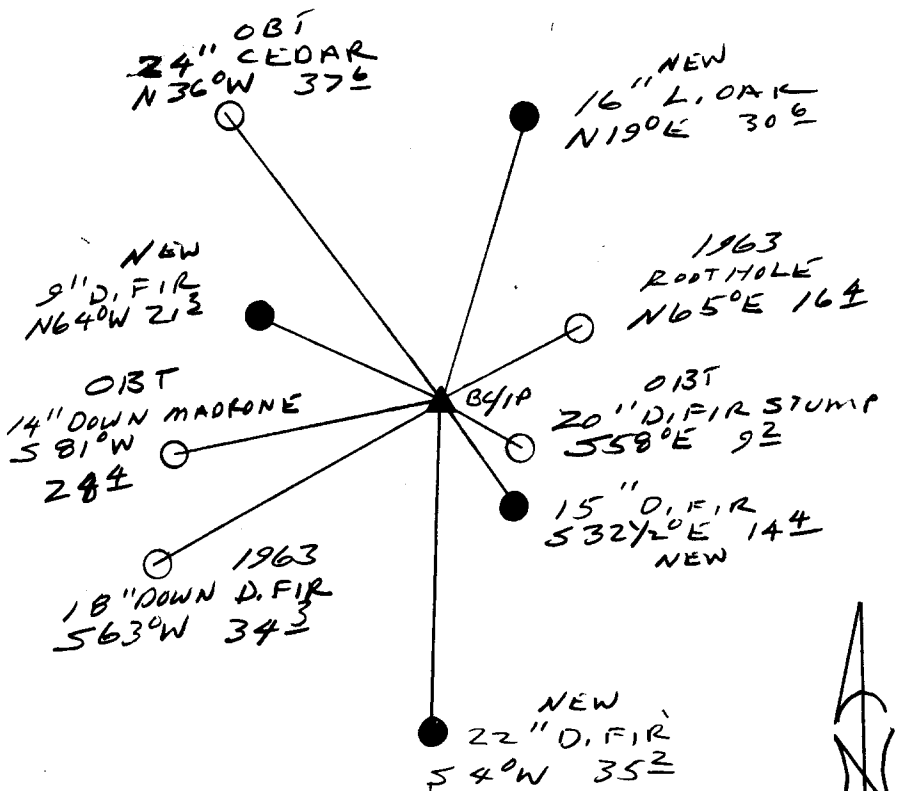 OBT
24" CEDAR
N36°W 37 6
NEW
16" L. OAK
N19°E 30 6
NEW
9" D. FIR
N64°W 21 3
1963
ROOT HOLE
N65°E 16 4
OBT
14" DOWN MADRONE
S 81°W
28 4
BC/IP
OBT
20" D. FIR STUMP
S58°E 9 2
15" D. FIR
S 32½°E 14 4
NEW
1963
18" DOWN D. FIR
S63°W 34 3
NEW
22" D. FIR
S 4°W 35 2